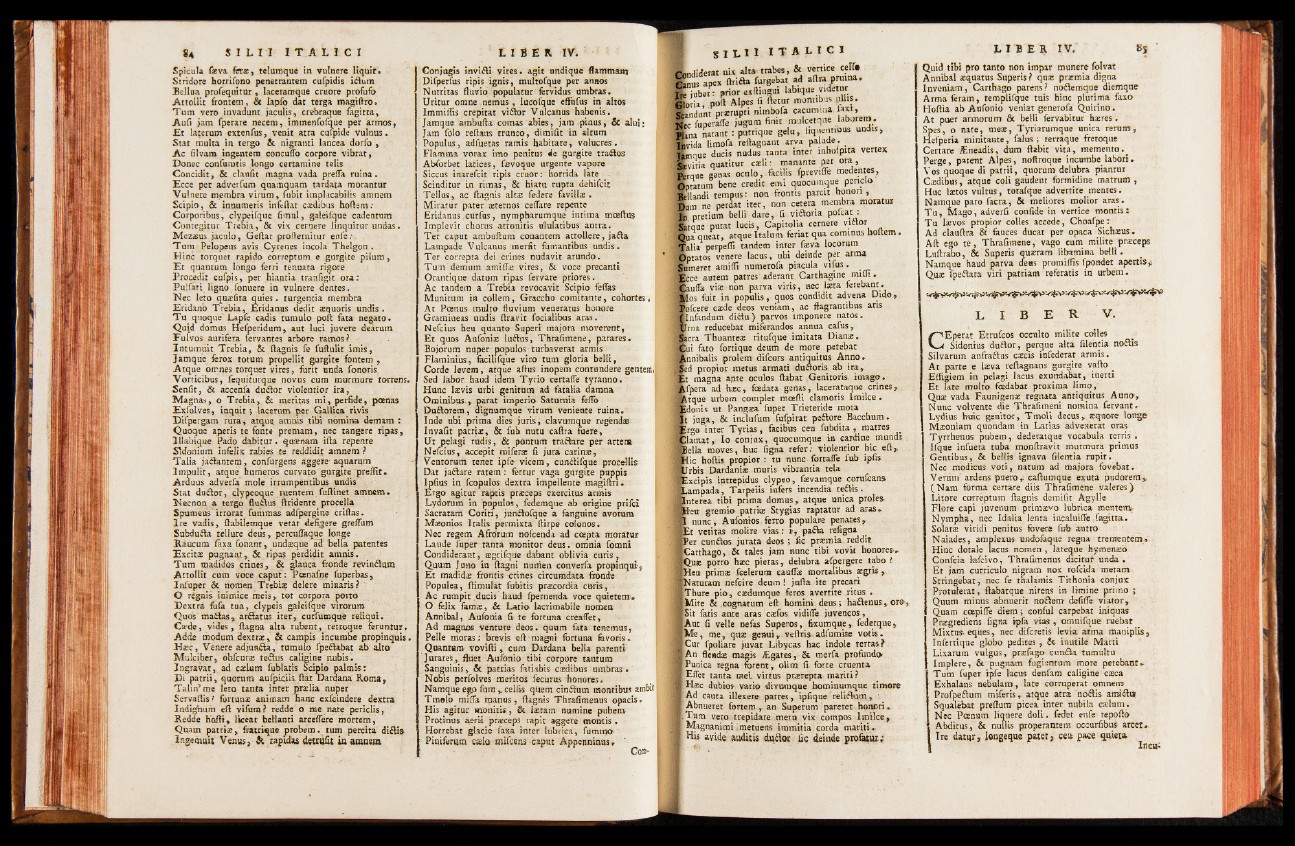 84 SILII ITALICI
Spicula sæva feræ, telumque in vulnere liquit.
Stridore horrisono penetrantem cuspidis ictum
Bellua prosequitur, lacetamque cruore profuso
Attollit frontem, & lapso dat terga magistro.
Tum vero invadunt jaculis, crebraque sagitta,
Ausi jam sperare necem, immensosque per armos,
Et laterum extensus, venit atra cuspide vulnus.
Stat multa in tergo & nigranti lancea dorso,
Ac silvam ingentem concusso corpore vibrat,
Donec consumtis longo certamine telis
Concidit, & clausit magna vada pressa ruina.
Ecce per adversum quamquam tardata morantur
Vulnere membra virum, subit implacabilis amnem
Scipio, & innumeris infestat cædibus hostem.
Corporibus, clypeisque simul, galeisque cadentum
Contegitur Trebia, & vix cernere linquitur undas.
Mezæus jaculo, Gestar prosternitur ense.
Tum Pelopeus avis Cyrenes incola Thelgon.
Hinc torquet rapido correptum e gurgite pilum,
Et quantum longo ferri tenuata rigore
Procedit cuspis, per hiantia transigit ora:
Pulsati ligno sonuere in vulnere dentes.
Nec leto quæsita quies. turgentia membra
Eridano Trebia, Eridanus dedit æquoris undis.
Tu quoque Lapse cadis tumulo post fata negato.
Quid domus Hesperidum, aut luci juvere dearum
Fulvos aurifera servantes arbore ramos?
Intumuit Trebia, & stagnis se sustulit imis,
Jamque ferox totum propellit gurgite fontem,
Atque omnes torquet vires, furit unda sonoris
Vorticibus, sequiturque novus cum murmure torrens.
Sensit, & accensa ductor violentior ira,
Magnas, o Trebia, & meritas mi, perfide, pœnas
Exsolves, inquit; lacerum per Gallica rivis
Dispergam rura, atque amnis tibi nomina demam:
Quoque aperis te fonte premam, nec tangere ripas,
Illabique Pado dabitur. quænam ista repente
Sidonium infelix rabies te reddidit amnem?
Talia jactantem, consurgens aggere aquarum
Impulit, atque humeros curvato gurgite pressit.
Arduus adversa mole irrumpentibus undis
Stat ductor, clypeoque ruentem sustinet amnem.
Necnon a tergo fluctus stridente procella
Spumeus irrorat summas adspergine cristas.
Ire vadis, stabilemque vetat defigere gressum
Subducta tellure deus, percussaque longe
Raucum saxa sonant, undæque ad bella patentes
Excitæ pugnant, & ripas perdidit amnis.
Tum madidos crines, & glauca fronde revinctum
Attollit cum voce caput: Pœnasne superbas,
Insuper & nomen Trebiæ delere minaris?
O regnis inimice meis, tot corpora porto
Dextra fusa tua, clypeis galeisque virorum
Quos mactas, arctatus iter, cursumque reliqui.
Cæde, vides, stagna alta rubent, retroque feruntur.
Adde modum dextræ, & campis incumbe propinquis.
Hæc, Venere adjuncta, tumulo spectabat ab alto
Mulciber, obscuræ tectus caligine nubis.
Ingravat, ad cælum sublatis Scipio palmis:
Di patrii, quorum auspiciis stat Dardana Roma,
Talin' me leto tanta inter prælia nuper
Servastis? fortunæ animam hanc exscindere dextra
Indignum est visum? redde o me nate periclis,
Redde hosti, liceat bellanti arcessere mortem,
Quam patriæ, fratrique probem. tum percita dictis
Ingemuit Venus, & rapidas detrusit in amnem
LIBER IV.
Conjugis invicti vires. agit undique flammam
Dispersus ripis ignis, multosque per annos
Nutritas fluvio populatur fervidus umbras.
Uritur omne nemus, lucosque effusus in altos
Immissis crepitat victor Vulcanus habenis.
Jamque ambusta comas abies, jam pinus, & alni:
Jam solo restans trunco, dimisit in altum
Populus, adsuetas ramis habitare, volucres.
Flamma vorax imo penitus de gurgite tractus
Absorbet latices, sævoque urgente vapore
Siccus inarescit ripis cruor: horrida late
Scinditur in rimas, & hiatu rupta dehiscit
Tellus, ac stagnis altæ sedere favillæ.
Miratur pater æternos cessare repente
Eridanus cursus, nympharumque intima mœstus
Implevit chorus attonitis ululatibus antra.
Ter caput ambustum conantem attollere, jacta
Lampade Vulcanus mersit fumantibus undis.
Ter correpta dei crines nudavit arundo.
Tum demum amissæ vires, & voce precanti
Orantique datum ripas servare priores.
Ac tandem a Trebia revocavit Scipio fessas
Munitum in collem, Graccho comitante, cohortes,
At Pœnus multo fluvium veneratus honore
Gramineas undis stravit socialibus aras.
Nescius heu quanto Superi majora moverent,
Et quos Ausoniæ luctus, Thrasimene, parares.
Bojorum nuper populos turbaverat armis
Flaminius, facilisque viro tum gloria belli,
Corde levem, atque astus inopem contundere gentem.
Sed labor haud idem Tyrio certasse tyranno.
Hunc lævis urbi genitum ad fatalia damna
Ominibus, parat imperio Saturnia fesso
Ductorem, dignumque virum veniente ruina.
Inde ubi prima dies juris, clavumque regendæ
Invasit patriæ, & sub nutu castra fuere,
Ut pelagi rudis, & pontum tractare per artem
Nescius, accepit miseræ si jura carinæ,
Ventorum tenet ipse vicem, cunctisque procellis
Dat jactare ratem: fertur vaga gurgite puppis
Ipsius in scopulos dextra impellente magistri.
Ergo agitur raptis præceps exercitus armis
Lydorum in populos, sedemque ab origine prisci
Sacratam Coriti, junctosque a sanguine avorum
Mæonios Italis permixta stirpe colonos.
Nec regem Afrorum noscenda ad cœpta moratur
Laude super tanta monitor deus. omnia somni
Condiderant, ægrisque dabant oblivia curis,
Quam Juno in stagni numen conversa propinqui,
Et madidæ frontis crines circumdata fronde
Populea, stimulat subitis præcordia curis,
Ac rumpit ducis haud spernenda voce quietem.
O felix famæ, & Latio lacrimabile nomen
Annibal, Ausonia si te fortuna creasset,
Ad magnos venture deos. quum fata tenemus,
Pelle moras: brevis est magni fortuna favoris.
Quantum vovisti, cum Dardana bella parenti
Jurares, fluet Ausonio tibi corpore tantum
Sanguinis, & patrias satiabis cædibus umbras.
Nobis persolves meritos securus honores.
Namque ego sum, celsis quem cinctum montibus ambit
Tmolo missa manus, stagnis Thrasimenus opacis.
His agitur monitis, & lætam numine pubem
Protinus aerii præceps rapit aggere montis.
Horrebat glacie saxa inter lubrica, summo
Piniferum cælo miscens caput Appenninus.
Con-
SILII ITALICI
Condiderat nix alta trabes, & vertice celso
Canus apex stricta surgebat ad astra pruina.
Ire jubet: prior exstingui labique videtur
Gloria, post Alpes si stetur montibus ullis.
Scandunt prærupti nimbosa cacumina saxi,
Nec superasse jugum finit mulcetque laborem.
Plana natant: putrique gelu, liquentibus undis,
Invida limosa restagnant arva palude.
Jamque ducis nudus tanta inter inhospita vertex
Sævitia quatitur cæli: manante per ora,
Perque genas oculo, facilis sprevisse medentes,
Optatum bene credit emi quocumque periclo
Bellandi tempus: non frontis parcit honori,
Dum ne perdat iter, non cetera membra moratur
In pretium belli dare, si victoria poscat:
Satque putat lucis, Capitolia cernere victor
Qua queat, atque Italum feriat qua cominus hostem.
Talia perpessi tandem inter sæva locorum
Optatos venere lacus, ubi deinde per arma
Sumeret amissi numerosa piacula visus.
Ecce autem patres aderant Carthagine missi.
Caussa viæ non parva viris, nec læta ferebant.
Mos fuit in populis, quos condidit advena Dido,
Poscere cæde deos veniam, ac flagrantibus aris
(Infandum dictu) parvos imponere natos.
Urna reducebat miserandos annua casus,
Sacra Thoanteæ ritusque imitata Dianæ.
Cui fato sortique deum de more petebat
Annibalis prolem discors antiquitus Anno.
Sed propior metus armati ductoris ab ira,
Et magna ante oculos stabat Genitoris imago.
Aspera ad hæc, fœdata genas, laceratuque crines,
Atque urbem complet mœsti clamoris Imilce.
Edonis ut Pangæa super Trieteride mota
It juga, & inclusum suspirat pectore Bacchum.
Ergo inter Tyrias, facibus ceu subdita, matres
Clamat, Io conjux, quocumque in cardine mundi
Bella moves, huc signa refer: violentior hic est,
Hic hostis propior: tu nunc fortasse sub ipsis
Urbis Dardaniæ muris vibrantia tela
Excipis intrepidus clypeo, sævamque coruscans
Lampada, Tarpeiis infers incendia tectis.
Interea tibi prima domus, atque unica proles
Heu gremio patriæ Stygias raptatur ad aras.
I nunc, Ausonios ferro populare penates,
Et vetitas molire vias: i, pacta resigna
Per cunctos jurata deos; sic præmia reddit
Carthago, & tales jam nunc tibi vovit honores.
Quæ porro hæc pietas, delubra aspergere tabo?
Heu primæ scelerum caussæ mortalibus ægris,
Naturam nescire deum! justa ite precari
Thure pio, cædumque feros avertite ritus.
Mite & cognatum est homini deus; hactenus, oro,
Sit satis ante aras cæsos vidisse juvencos,
Aut si velle nefas Superos, fixumque, sedetque,
Me, me, quæ genui, vestris adsumite votis.
Cur spoliare juvat Libycas hac indole terras?
An flendæ magis Ægates, & mersa profundo
Punica regna forent, olim si sorte cruenta
Esset tanta mei virtus præcepta mariti?
Hæc dubios vario divumque hominumque timore
Ad cauta illexere patres, ipsique relictum,
Abnueret sortem, an Superum pareret honori.
Tum vero trepidare metu vix compos Imilce,
Magnanimi metuens immitia corda mariti.
His avide auditis ductor sic deinde profatur:
LIBER IV. 85
Quid tibi pro tanto non impar munere solvat
Annibal æquatus Superis? quæ præmia digna
Inveniam, Carthago parens? noctemque diemque
Arma feram, templisque tuis hinc plurima faxo
Hostia ab Ausonio veniat generosa Quirino.
At puer armorum & belli servabitur hæres.
Spes, o nate, meæ, Tyriarumque unica rerum,
Hesperia minitante, salus; terraque fretoque
Certare Æneadis, dum stabit vita, memento.
Perge, patent Alpes, nostroque incumbe labori.
Vos quoque di patrii, quorum delubra piantur
Cædibus, atque coli gaudent formidine matrum,
Huc lætos vultus, totasque advertite mentes.
Namque paro sacra, & meliores molior aras.
Tu, Mago, adversi conside in vertice montis:
Tu lævos propior colles accede, Choaspe:
Ad claustra & fauces ducat per opaca Sichæus.
Ast ego te, Thrasimene, vago cum milite præceps
Lustrabo, & Superis quæram libamina belli.
Namque haud parva deus promissis spondet apertis,
Quæ spectata viri patriam referatis in urbem.
LIBER V.
CEperat Etruscos occulto milite colles
Sidonius ductor, perque alta silentia noctis
Silvarum anfractus cæcis insederat armis.
At parte e læva restagnans gurgite vasto
Effigiem in pelagi lacus exundabat, inerti
Et late multo fœdabat proxima limo,
Quæ vada Faunigenæ regnata antiquitus Auno,
Nunc volvente die Thrasimeni nomina servant.
Lydius huic genitor, Tmoli decus, æquore longe
Mæoniam quondam in Latias advexerat oras
Tyrrhenus pubem, dederatque vocabula terris.
Isque insueta tuba monstravit murmura primus
Gentibus, & bellis ignava silentia rupit.
Nec modicus voti, natum ad majora fovebat.
Verum ardens puero, castumque exuta pudorem,
(Nam forma certare diis Thrasimene valeres)
Litore correptum stagnis demisit Agylle
Flore capi juvenum primævo lubrica mentem,
Nympha, nec Idalia lenta incaluisse sagitta.
Solatæ viridi penitus fovere sub antro
Naiades, amplexus undosaque regna trementem.
Hinc dotale lacus nomen, lateque hymenæo
Conscia lascivo, Thrasimenus dicitur unda.
Et jam curriculo nigram nox roscida metam
Stringebat, nec se thalamis Tithonia conjux
Protulerat, stabatque nitens in limine primo;
Quum minus abnuerit noctem desisse viator,
Quam cœpisse diem; consul carpebat iniquas
Prægrediens signa ipsa vias, omnisque ruebat
Mixtus eques, nec discretis levia arma maniplis,
Insertique globo pedites, & inutile Marti
Lixarum vulgus, præsago cuncta tumultu
Implere, & pugnam fugientum more petebant.
Tum super ipse lacus densam caligine cæca
Exhalans nebulam, late corruperat omnem
Prospectum miseris, atque atra noctis amictu
Squalebat pressum picea inter nubila cælum.
Nec Pœnum liquere doli. sedet ense reposto
Abditus, & nullis properantem occursibus arcet.
Ire datur, longeque patet, ceu pace quieta
Incu-